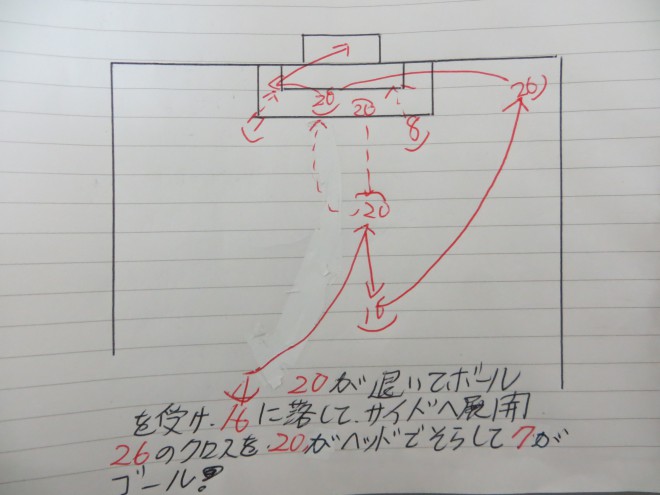 26
20
20
7
8
20
16
4
20が退いてボール
を受け.16に落して.サイドへ展開
26のクロスを.20がヘッドでそらして7が
ゴール!